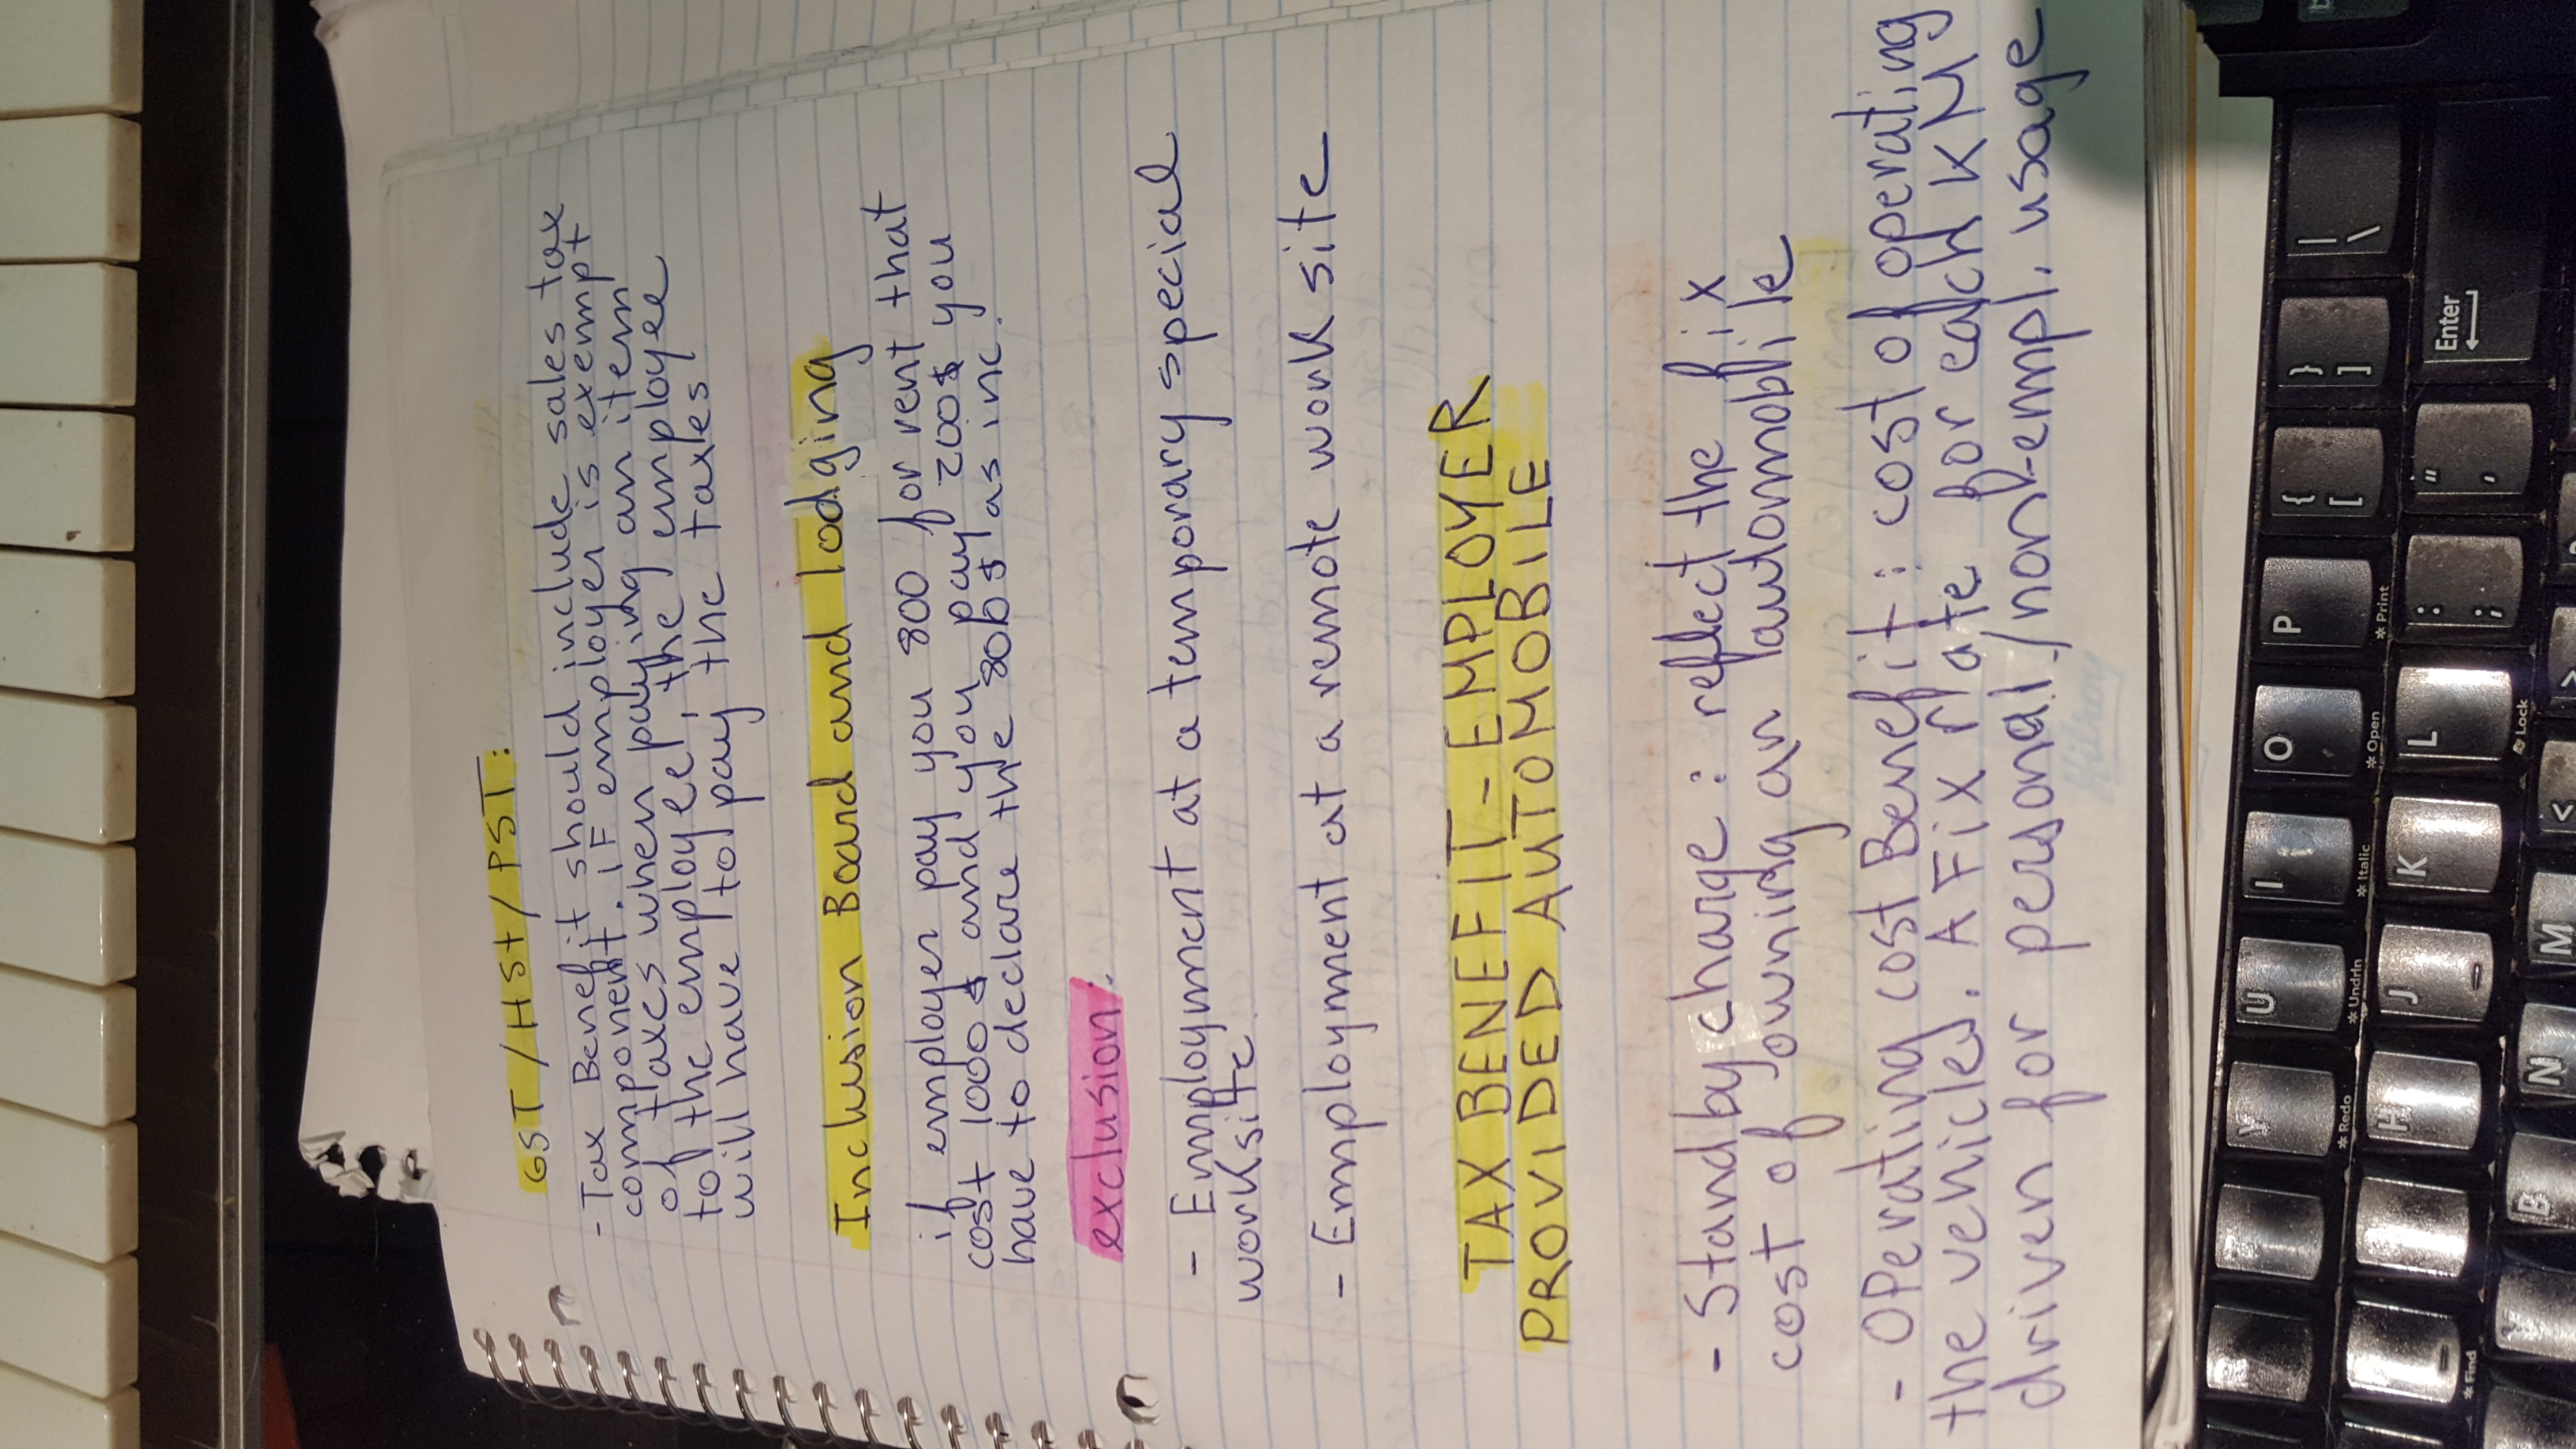 GST / HST / PST:
- Tax Benefit should include sales tax
component. iF employer is exempt
of taxes when paying an item
to the employee, the employee
will have to pay the taxes
Inclusion Board and lodging
if employer pay you 800 for rent that
cost 1000$ and you pay 200$ you
have to declare the 800$ as inc.
exclusion:
- Employment at a temporary special
worksite
- Employment at a remote work site
TAX BENEFIT - EMPLOYER
PROVIDED AUTOMOBILE
- Standby charge : reflect the fix
cost of owning an automobile
- OPerating cost Benefit : cost of operating
the vehicle. A Fix rate for each KM
driven for personal/non-empl. usage
Enter
| \
} ]
{ [
P
* Print
O
* Open
I
* Italic
U
* Undrln
Y
* Redo
" '
: ;
L
* Lock
K
J
H
* Find
>
<
M
N
B